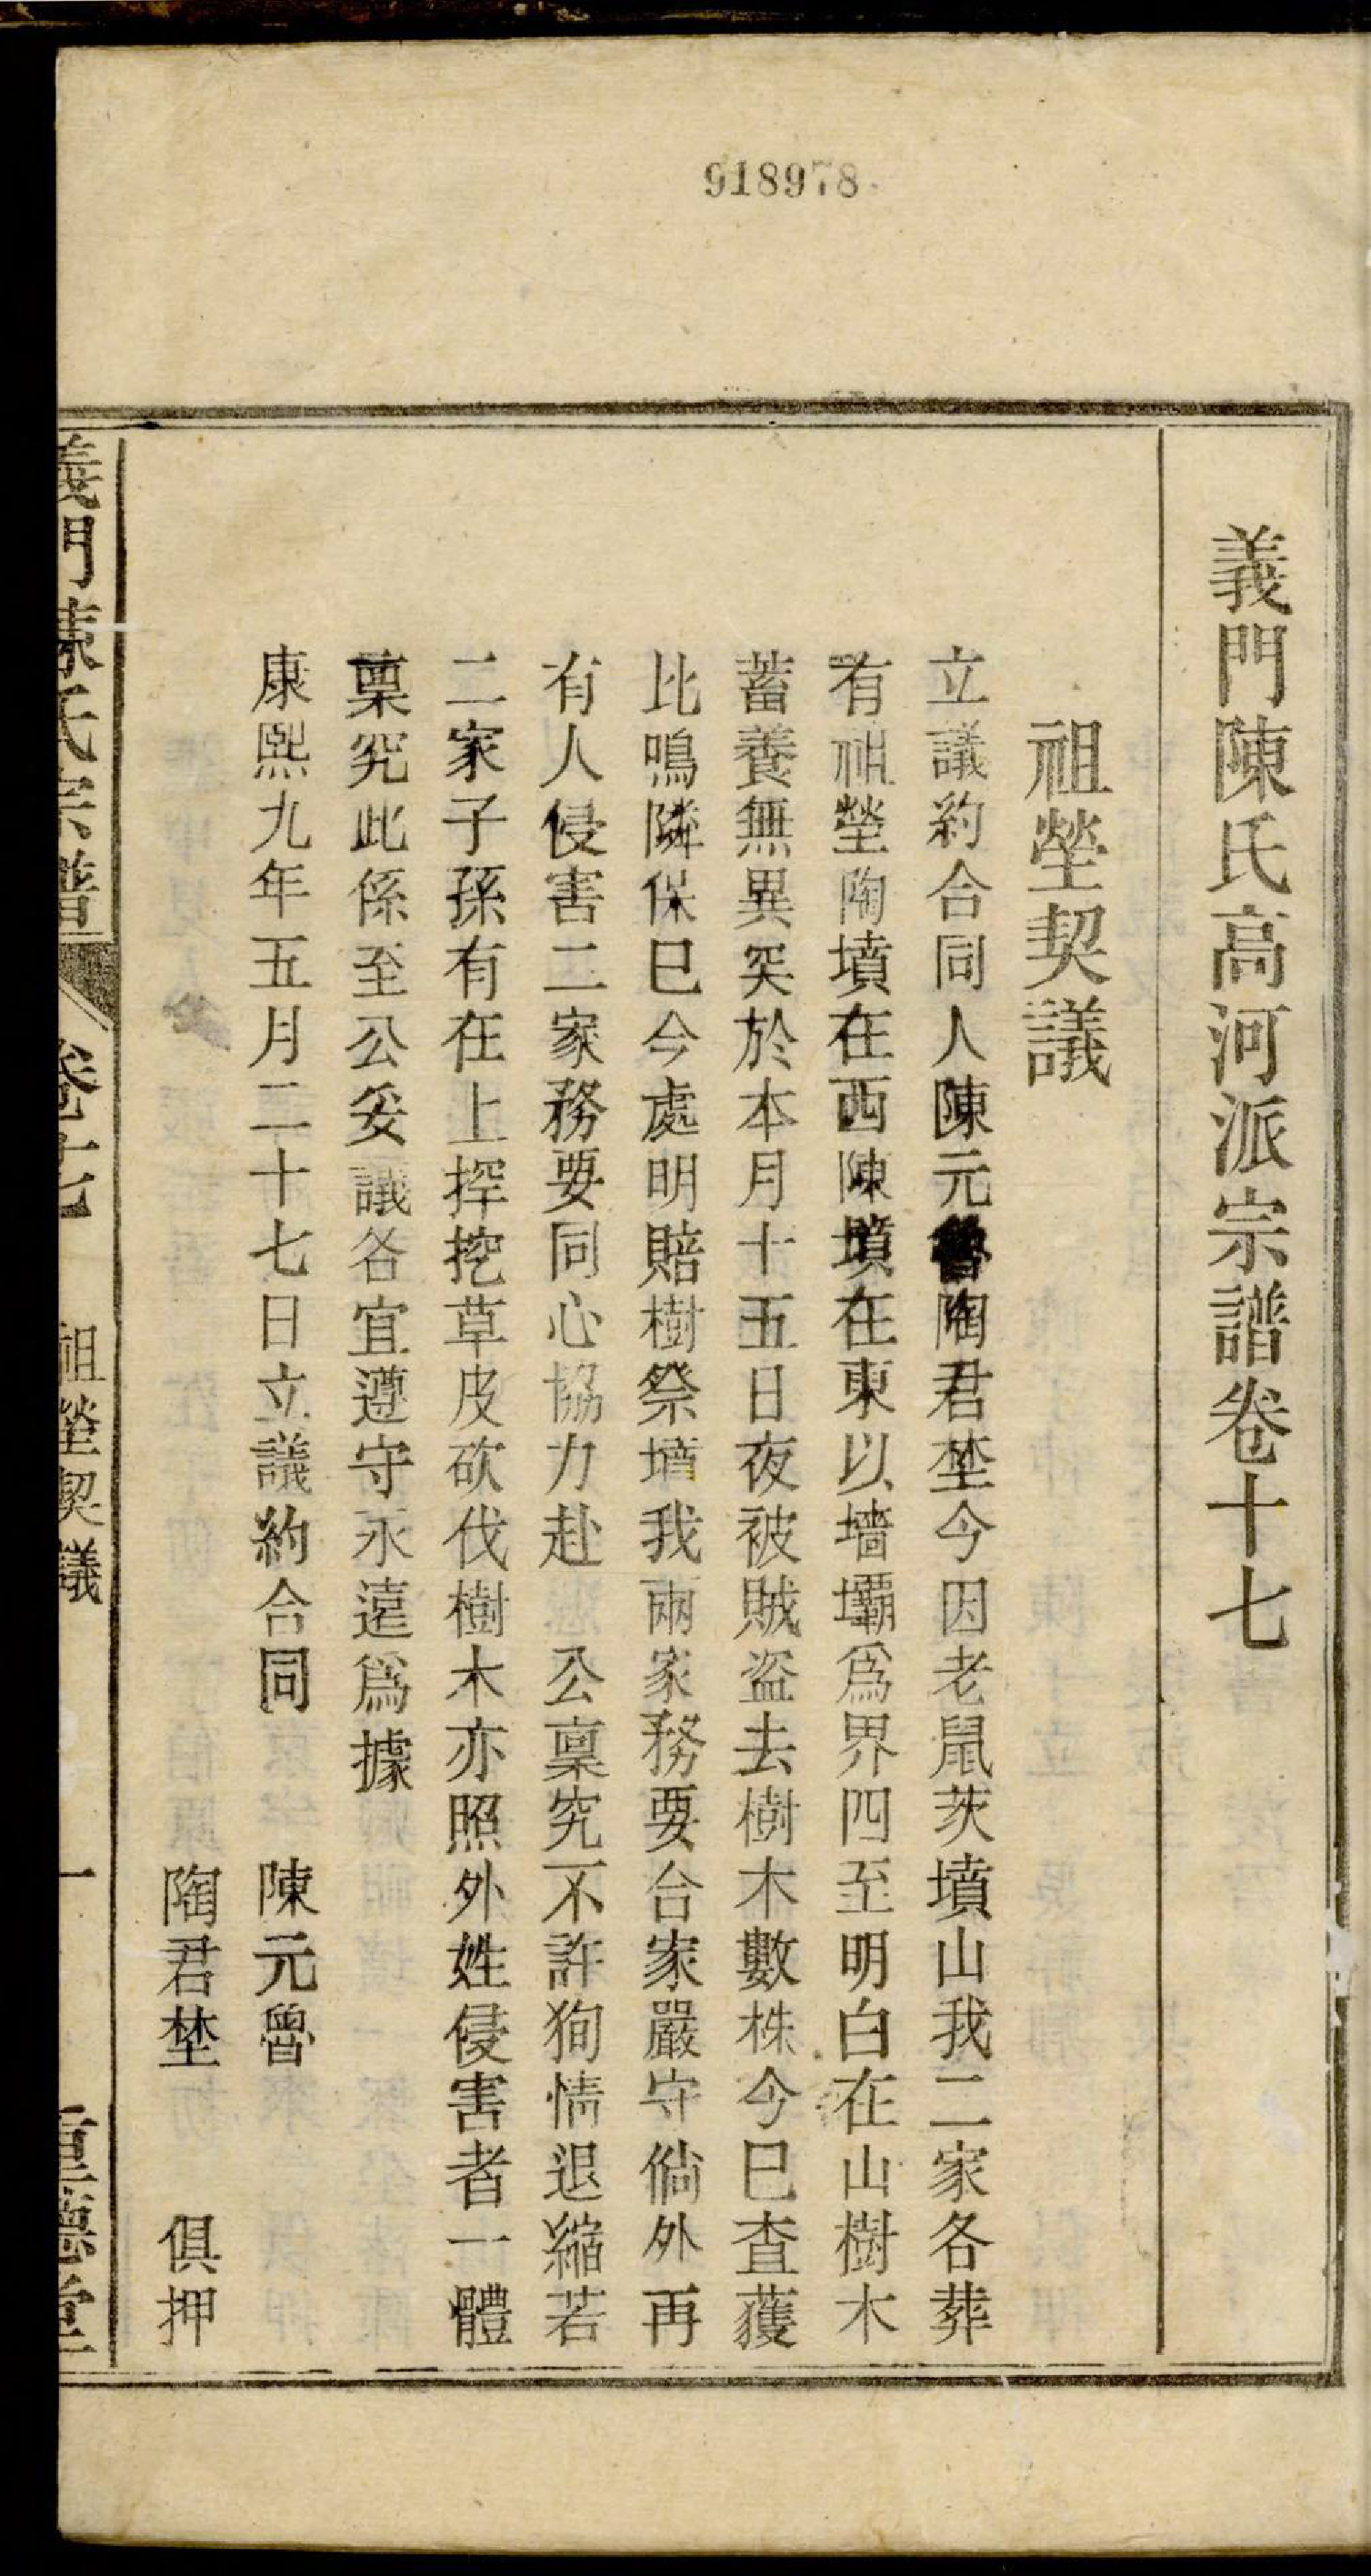 918978
義門陳氏高河派宗譜卷十七
祖塋契議
立議約合同人陳元魯陶君埜今因老鼠茨墳山我二家各葬
有祖塋陶墳在西陳墳在東以墻壩爲界四至明白在山樹木
蓄養無異突於本月十五日夜被賊盜去樹木數株今巳查獲
比鳴隣保巳今處明賠樹祭墳我兩家務要合家嚴守倘外再
有人侵害二家務要同心協力赴 公稟究不許狥情退縮若
二家子孫有在上挖草皮砍伐樹木亦照外姓侵害者一體
稟究此係至公妥議各宜遵守永遠爲據
康熙九年五月二十七日立議約合同 陳元魯
陶君埜 俱押
義門陳氏宗譜 卷十七 祖塋契議 一 重德堂